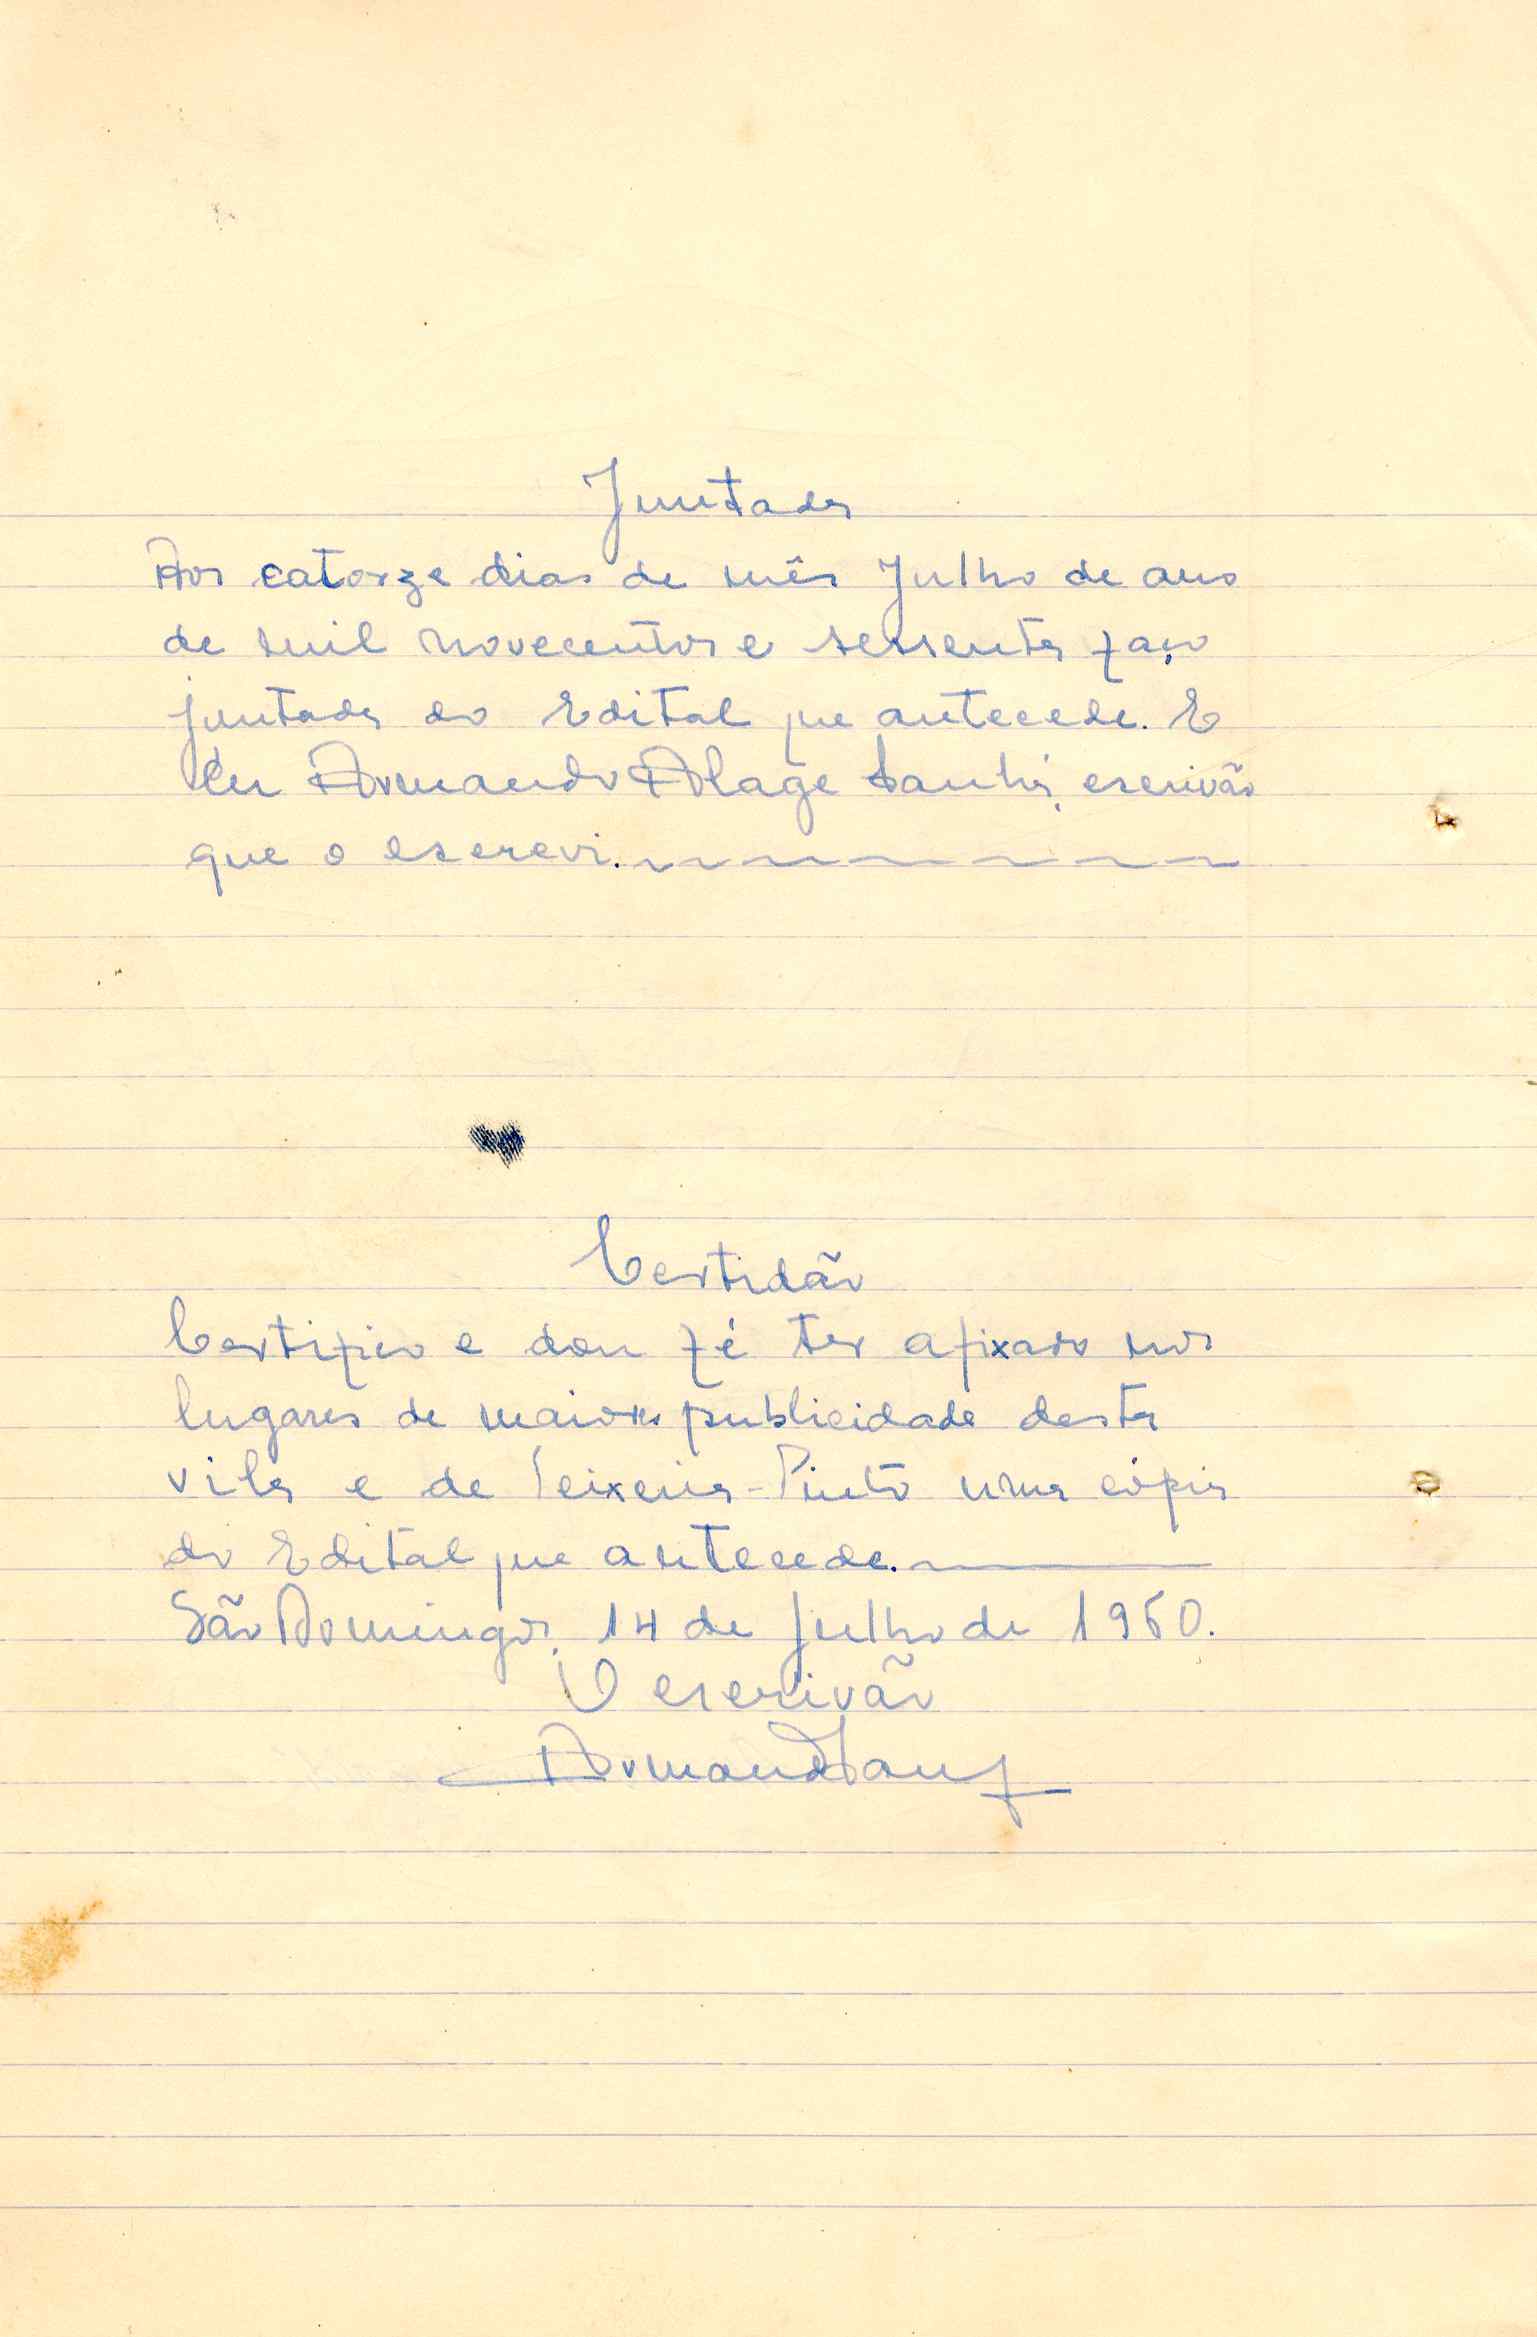 Juntada
Aos catorze dias de mês Julho de ano
de mil novecentos e sessenta faço
juntada do Edital que antecede. E
Eu Armando Alage Sanhá, escrivão
que o escrevi.
Certidão
Certifico e dou fé ter afixado nos
lugares de maiores publicidade desta
vila e de Teixeira-Pinto uma cópia
do Edital que antecede.
São Domingos, 14 de Julho de 1960.
O escrivão